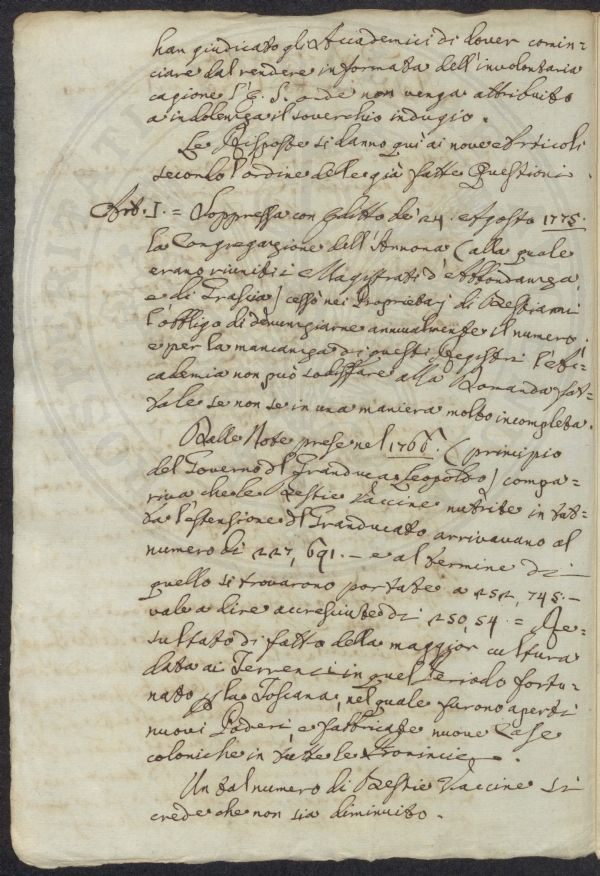 han giudicato gli Accademici di dover comin=
ciare dal rendere informata dell'involontaria
cagione l'E. S. onde non venga attribuito
a indolenza il soverchio indugio.
Le Risposte si danno quì ai nove Articoli
secondo l'ordine delle già fatte Questioni.
Art. I. = Soppressa con Editto de' 24. Agosto 1775.
la Congregazione dell'Annona (alla quale
erano riuniti i Magistrati d'Abbondanza,
e di Grascia) cessò nei Proprietarj di Bestiami
l'obbligo di denunziarne annualmente il numero;
e per la mancanza di questi Registri l'Ac=
cademia non può sodisfare alla Domanda fat=
tale se non se in una maniera molto incompleta.
Dalle Note prese nel 1766. (principio
del Governo del Granduca Leopoldo) compa=
riva che le Bestie Vaccine nutrite in tut=
ta l'estensione del Granducato arrivavano al
numero di 227,691. – e al termine di
quello si trovarono portate a 252,745. –
vale a dire accresciute di 250,54. = Re=
sultato di fatto della maggior cultura
data ai Terreni in quel Periodo fortu=
nato p la Toscana, nel quale furono aperti
nuovi Poderi, e fabbricate nuove Case
coloniche in tutte le Provincie.
Un tal numero di Bestie Vaccine si
crede che non sia diminuito.